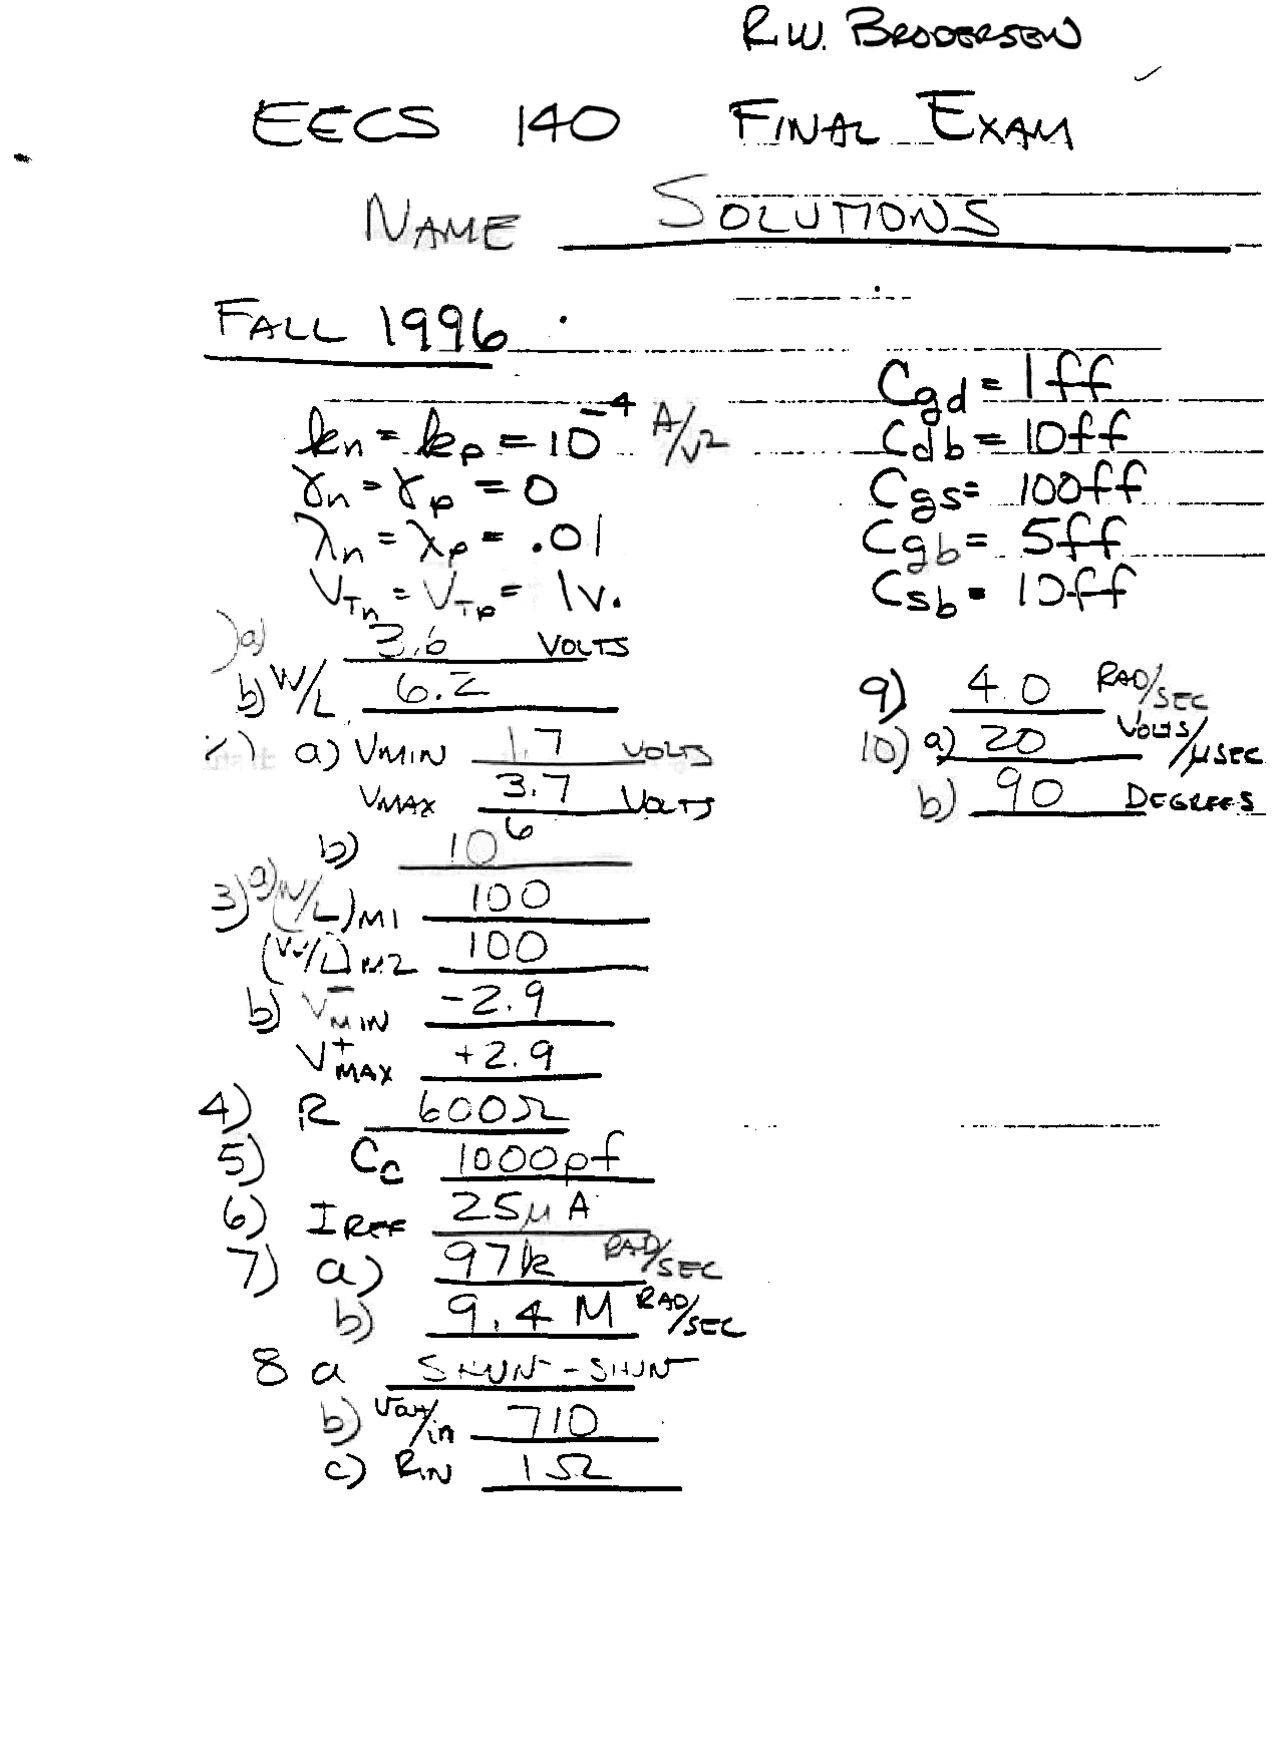 R.W. BRODERSEN
EECS 140 FINAL EXAM
NAME SOLUTIONS
FALL 1996
kn = kp = 10^-4 A/V^2
γn = γp = 0
λn = λp = .01
VTn = VTp = 1V.
Cgd = 1ff
Cdb = 10ff
Cgs = 100ff
Cgb = 5ff
Csb = 10ff
a) 3.6 VOLTS
b) W/L 6.2
a) VMIN 1.7 VOLTS
VMAX 3.7 VOLTS
b) 10^6
3) a) (W/L)M1 100
(W/L)M2 100
b) V-MIN -2.9
V+MAX +2.9
4) R 600Ω
5) Cc 1000pf
6) IREF 25μA
7) a) 97k RAD/SEC
b) 9.4 M RAD/SEC
8 a SHUNT-SHUNT
b) Vout/in 710
c) RIN 1Ω
9) 4.0 RAD/SEC
10) a) 20 VOLTS/μSEC
b) 90 DEGREES